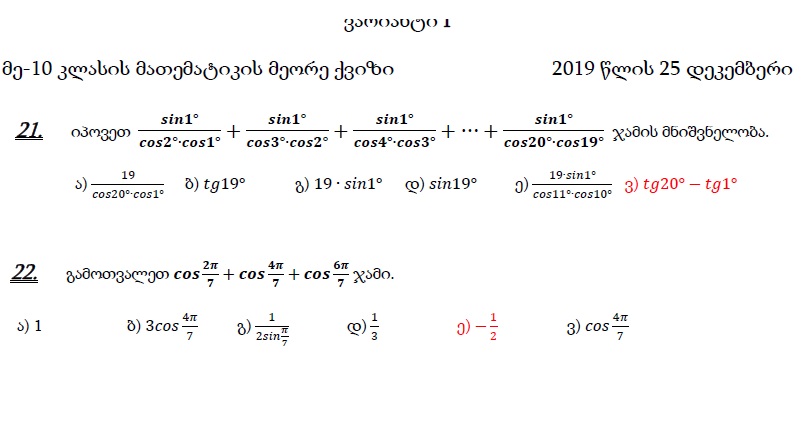 ვარიანტი 1
მე-10 კლასის მათემატიკის მეორე ქვიზი 2019 წლის 25 დეკემბერი
21. იპოვეთ sin1°/cos2°·cos1° + sin1°/cos3°·cos2° + sin1°/cos4°·cos3° + ⋯ + sin1°/cos20°·cos19° ჯამის მნიშვნელობა.
ა) 19/cos20°·cos1° ბ) tg19° გ) 19 · sin1° დ) sin19° ე) 19·sin1°/cos11°·cos10° ვ) tg20° − tg1°
22. გამოთვალეთ cos 2π/7 + cos 4π/7 + cos 6π/7 ჯამი.
ა) 1 ბ) 3cos 4π/7 გ) 1/2sin π/7 დ) 1/3 ე) − 1/2 ვ) cos 4π/7